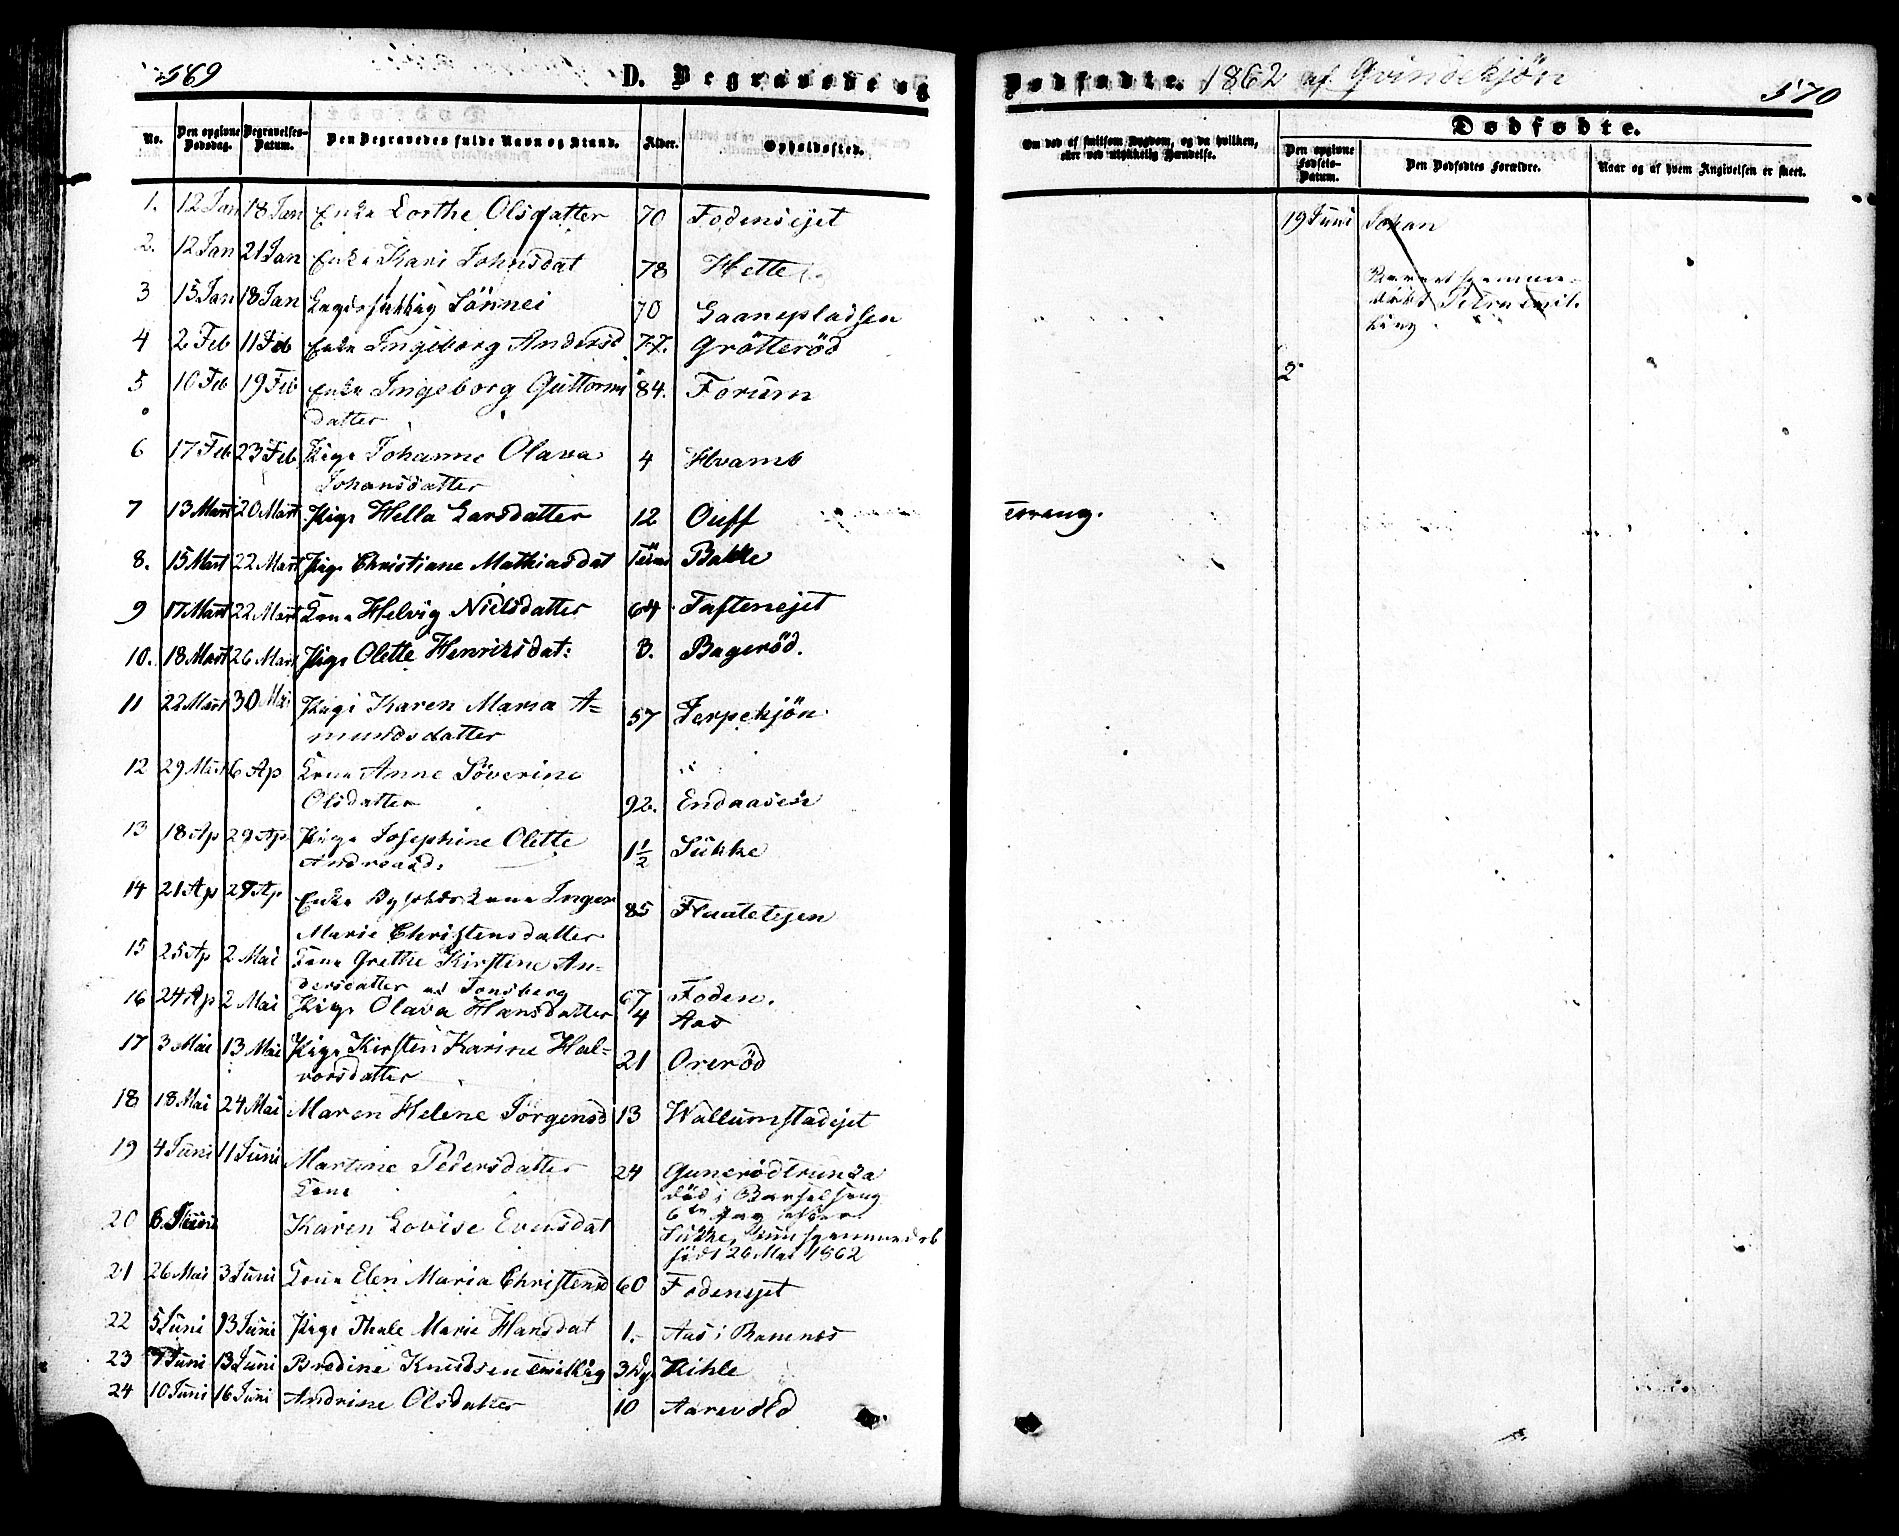 569
D. Begravede og
No. Den opgivne Dødsdag. Begravelses-Datum. Den Begravedes fulde Navn og Stand. Alder. Opholdssted.
1. 12 Jan 18 Jan Enke Dorthe Olsdatter 70 Fodensejet
2. 12 Jan 21 Jan Enke Kari Johnsdat 78 Hette
3 15 Jan 18 Jan Lægdsfattig Sönnei 70 Gaanepladsen
4 2 Feb 11 Feb Enke Ingeborg Andersd 77. Grötteröd
5 10 Feb 19 Feb Enke Ingeborg Guttorms 84. Forum
datter
6 17 Feb 23 Feb Pige Johanne Olava 4 Hvamb
Johansdatter
7 13 Mart 20 Mart Pige Hella Larsdatter 12 Ouff
8. 15 Mart 22 Mart Pige Christiane Mathiasdat Bakke
9 17 Mart 22 Mart Kone Helvig Nielsdatter 64 Taftenejet
10. 18 Mart 26 Mart Pige Olette Henriksdat: 3. Bageröd.
11 22 Mart 30 Pige Karen Maria A=
mundsdatter 57 Jerpekjön
12 29 Mart 6 Ap Kone Anne Söverine
Olsdatter 92. Endaasen
13 18 Ap 29 Ap Pige Josephine Olette
Andreasd. 1½ Sukke
14 21 Ap 27 Ap Enke Inger 85
Marie Christensdatter
15 25 Ap 2 Mai Kone Grethe Kirstine An=
dersdatter Tonsberg 67 Foden.
16 24 Ap 2 Mai Pige Olava Hansdatter 4 Aas
17 3 Mai 13 Mai Pige Kirsten Karine Hal=
vorsdatter 21 Oreröd
18 18 Mai 24 Mai Maren Helene Jörgensd 13 Wallumstadejet
19 4 Juni 11 Juni Martine Pedersdatter 24 Guneröd
Kone död i Barselseng
20 6 Juni Karen Lovise Evensdat
Sukke,
född 26 Mai 1862
21 26 Mai 3 Juni Kone Elen Maria Christensd 60 Fodensejet
22 5 Juni 13 Juni Pige Thale Marie Hansdat 1. Aas i Ramnes
23 7 Juni 13 Juni Bredine Knudsen 3 Kihle
24 10 Juni 16 Juni Andrine Olsdatter 10 Aarevold
Dødfødte. 1862 af Qvindekjön
570
Om død af smitsom Sygdom, og da hvilken, eller ved ulykkelig Hændelse.
Dødfødte.
Den opgivne Fødsels-Datum. Den Dødfødtes Forældre. Naar og af hvem Angivelsen er skeet.
19 Juni Johan
2